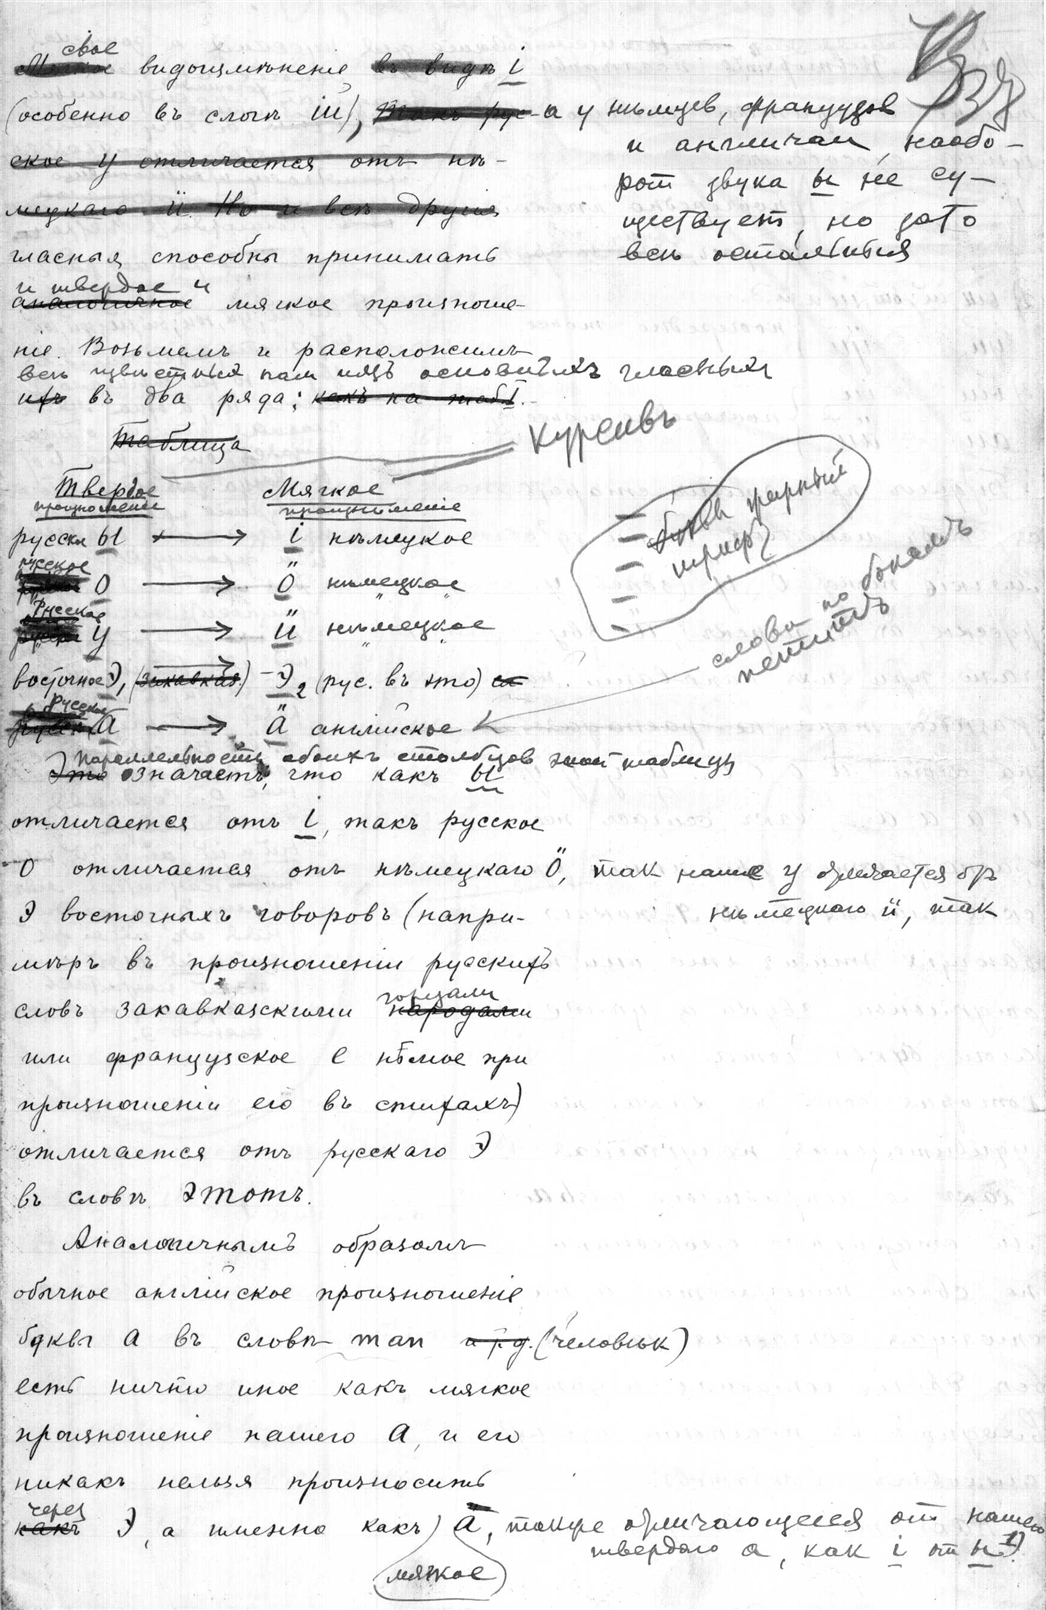 свое
видоизмѣненіе въ видѣ i
(особенно въ слогѣ iй), такъ рус- а у нѣмцев, французов
ское у отличается отъ нѣ-
и англичан, наобо-
мецкаго ü. Но и всѣ другія
рот звука ы не су-
ществует, но зато
гласныя способны принимать
всѣ остальныя
и твердое и
аналогичное мягкое произноше-
ніе. Возьмемъ и расположимъ
всѣ извѣстныя нам изъ основныхъ гласныхъ
ихъ въ два ряда: какъ на табл.
Таблица
Курсивъ
Твердое Мягкое
произношеніе произношеніе
буквы жирный
шрифт
русск. ы → i нѣмецкое
русское
о → ö нѣмецкое
Русское
у → ü нѣмецкое
слова по бокамъ
петитъ
восточное Э, (закавказ.) → Э₂ (рус. въ это)
Русское
а → ä англійское
Параллельность обоихъ столбцов этой таблицы
Это означаетъ, что какъ ы
отличается отъ i, такъ русское
о отличается отъ нѣмецкаго ö, так наше у отличается отъ
нѣмецкаго ü, так
Э восточныхъ говоровъ (напри-
мѣръ въ произношеніи русскихъ
словъ закавказскими
горцами
народами
или французское е нѣмое при
произношеніи его въ стихахъ)
отличается отъ русскаго Э
въ словѣ этотъ.
Аналогичнымъ образомъ
обычное англійское произношеніе
буквы а въ словѣ man (человѣкъ)
есть ничто иное какъ мягкое
произношеніе нашего а, и его
никакъ нельзя произносить
через
какъ Э, а именно какъ ä, также отличающееся от нашего
твердаго а, как i от ы
мягкое